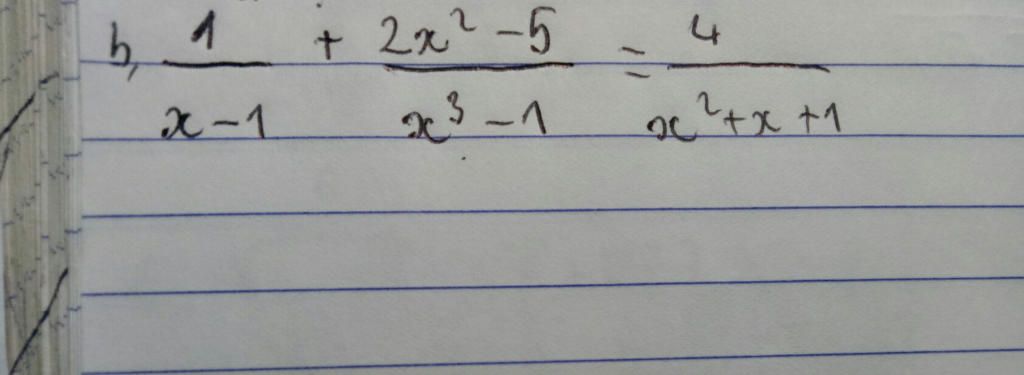 b, 1/(x-1) + (2x²-5)/(x³-1) = 4/(x²+x+1)